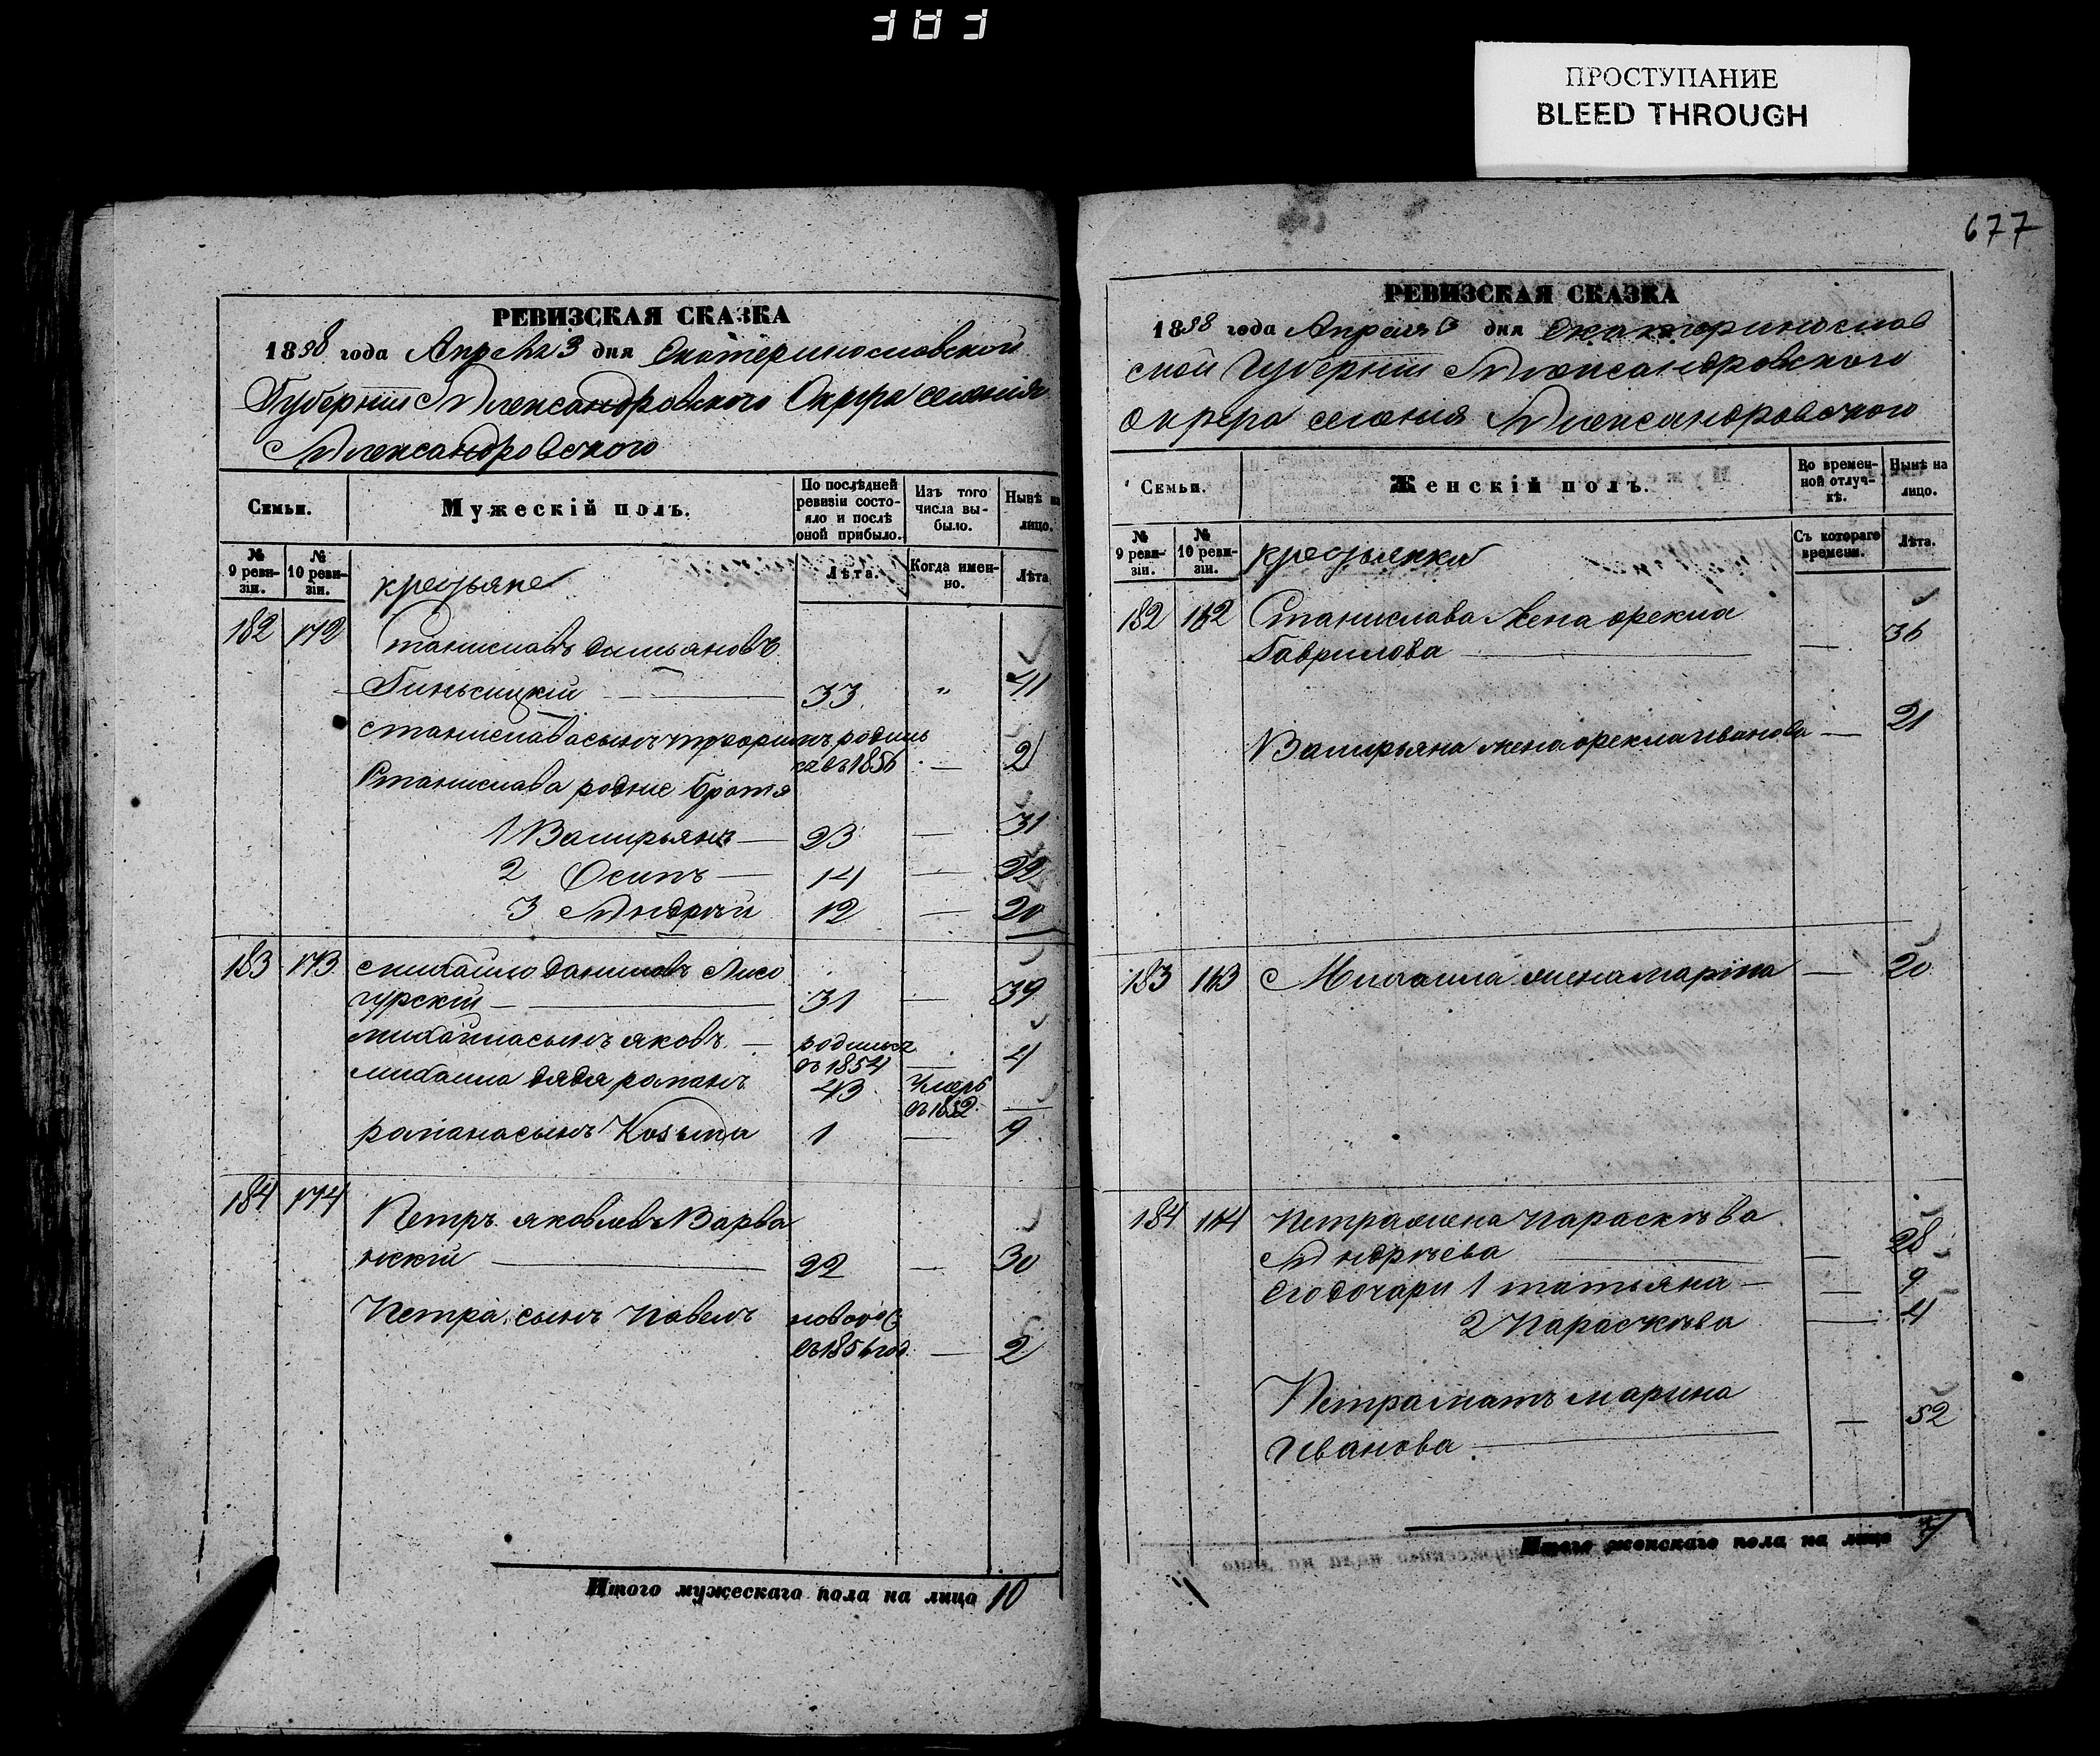 383
ПРОСТУПАНИЕ
BLEED THROUGH
677
РЕВИЗСКАЯ СКАЗКА
1858 года Апреля 3 дня Екатеринославской
Губернии Александровского Округа селения
Александровского
Семьи.
Мужескій полъ.
По послѣдней ревизіи состояло и послѣ оной прибыло.
Изъ того числа выбыло.
Нынѣ на лицо.
№ 9 ревизіи.
№ 10 ревизіи.
крестьяне
Лѣта.
Когда именно.
Лѣта
182 172 Станиславъ Демьяновъ
33 " 41
Станислава сынъ родил
ся въ 1856 — 2
Станислава родные братья
1 Валирьянъ — 23 — 31
2 Осипъ — 14 — 22
3 Андрей 12 — 20
183 173 Михайло Даниловъ Лисо
гурскій — 31 — 39
Михаила сынъ Яковъ — родился
въ 1854 — 4
Михаила дядя Романъ 43 Умеръ
въ 1852 —
Романа сынъ Козьма 1 — 9
184 174 Петръ Яковлевъ Варва
нскій — 22 — 30
Петра сынъ Павелъ новорож
въ 1856 год — 2
Итого мужескаго пола на лицо 10
РЕВИЗСКАЯ СКАЗКА
1858 года Апреля 3 дня Екатеринослав
ской Губернии Александровского
Округа селения Александровского
Семьи.
Женскій полъ.
Во временной отлучкѣ.
Нынѣ на лицо.
№ 9 ревизіи.
№ 10 ревизіи.
крестьянки
Съ котораго времени.
Лѣта.
182 172 Станислава жена Фекла
Гаврилова — — 36
Валирьяна жена Фекла Иванова — 21
183 173 Михаила жена Марина — 20
184 174 Петра жена Параскѣва
Андрѣева — — 28
его дочари 1 Татьяна — — 9
2 Параскѣва — 4
Петра мать Марина
Иванова — — 52
Итого женскаго пола на лицо 7